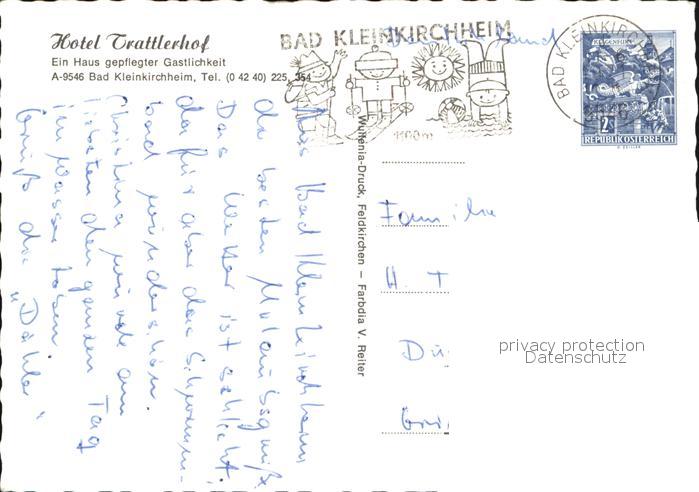 Hotel Trattlerhof
Ein Haus gepflegter Gastlichkeit
A-9546 Bad Kleinkirchheim, Tel. (0 42 40) 225, 354
BAD KLEINKIRCHHEIM
1100m
BAD KLEINKIRCHHEIM
9546
KLAGENFURT
2S
REPUBLIK ÖSTERREICH
Wulfenia-Druck, Feldkirchen – Farbdia V. Reiter
Aus Bad Kleinkirchheim
die besten Urlaubsgrüße.
Das Wetter ist schlecht.
dafür aber das Schwimm-
bad wunderschön.
Christina würde am
liebsten den ganzen Tag
im Wasser toben.
Gruß die
"Döhler"
Familie
H. T
Dü
privacy protection
Datenschutz